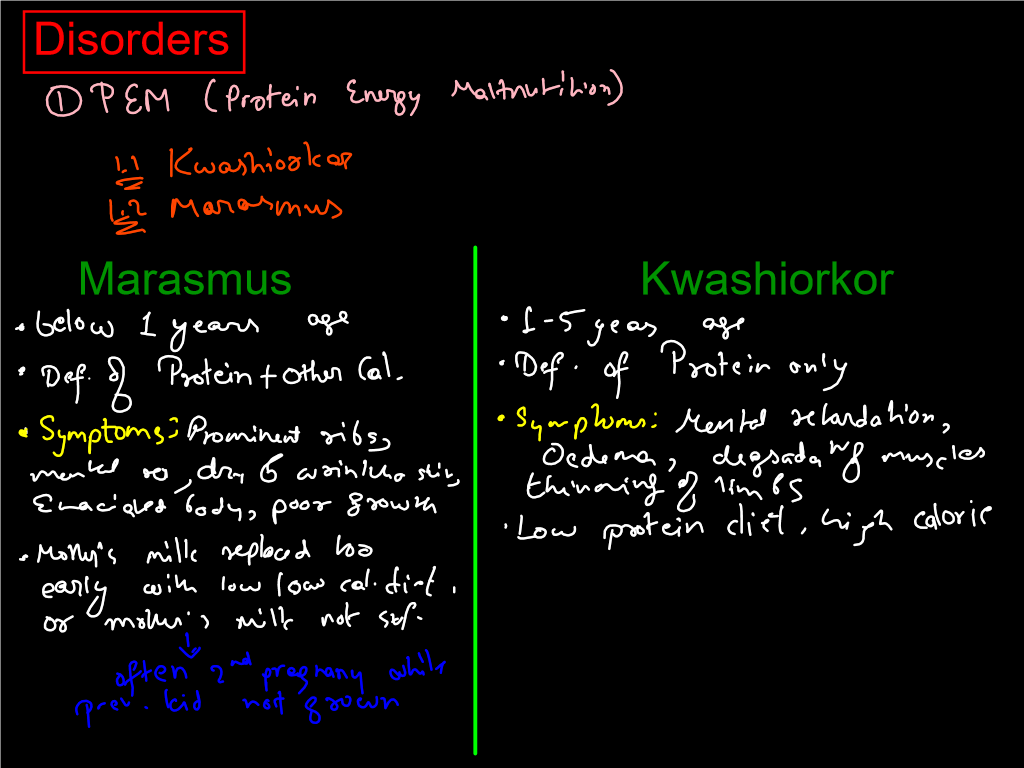 Disorders
① PEM (Protein Energy Malnutrition)
1.1 Kwashiorkor
1.2 Marasmus
Marasmus
• below 1 years age
• Def. of Protein + other Cal.
• Symptoms: Prominent ribs,
mental, dry & skin,
Emaciated body, poor growth
• Mother's milk replaced too
early with low low cal. diet.
or mother's milk not suf.
↓
often 2nd pregnany while
prev. kid not grown
Kwashiorkor
• 1-5 yeas age
• Def. of Protein only
• Symptoms: Mental retardation,
Oedema, of muscles
thinning of limbs
• Low protein diet, high calorie